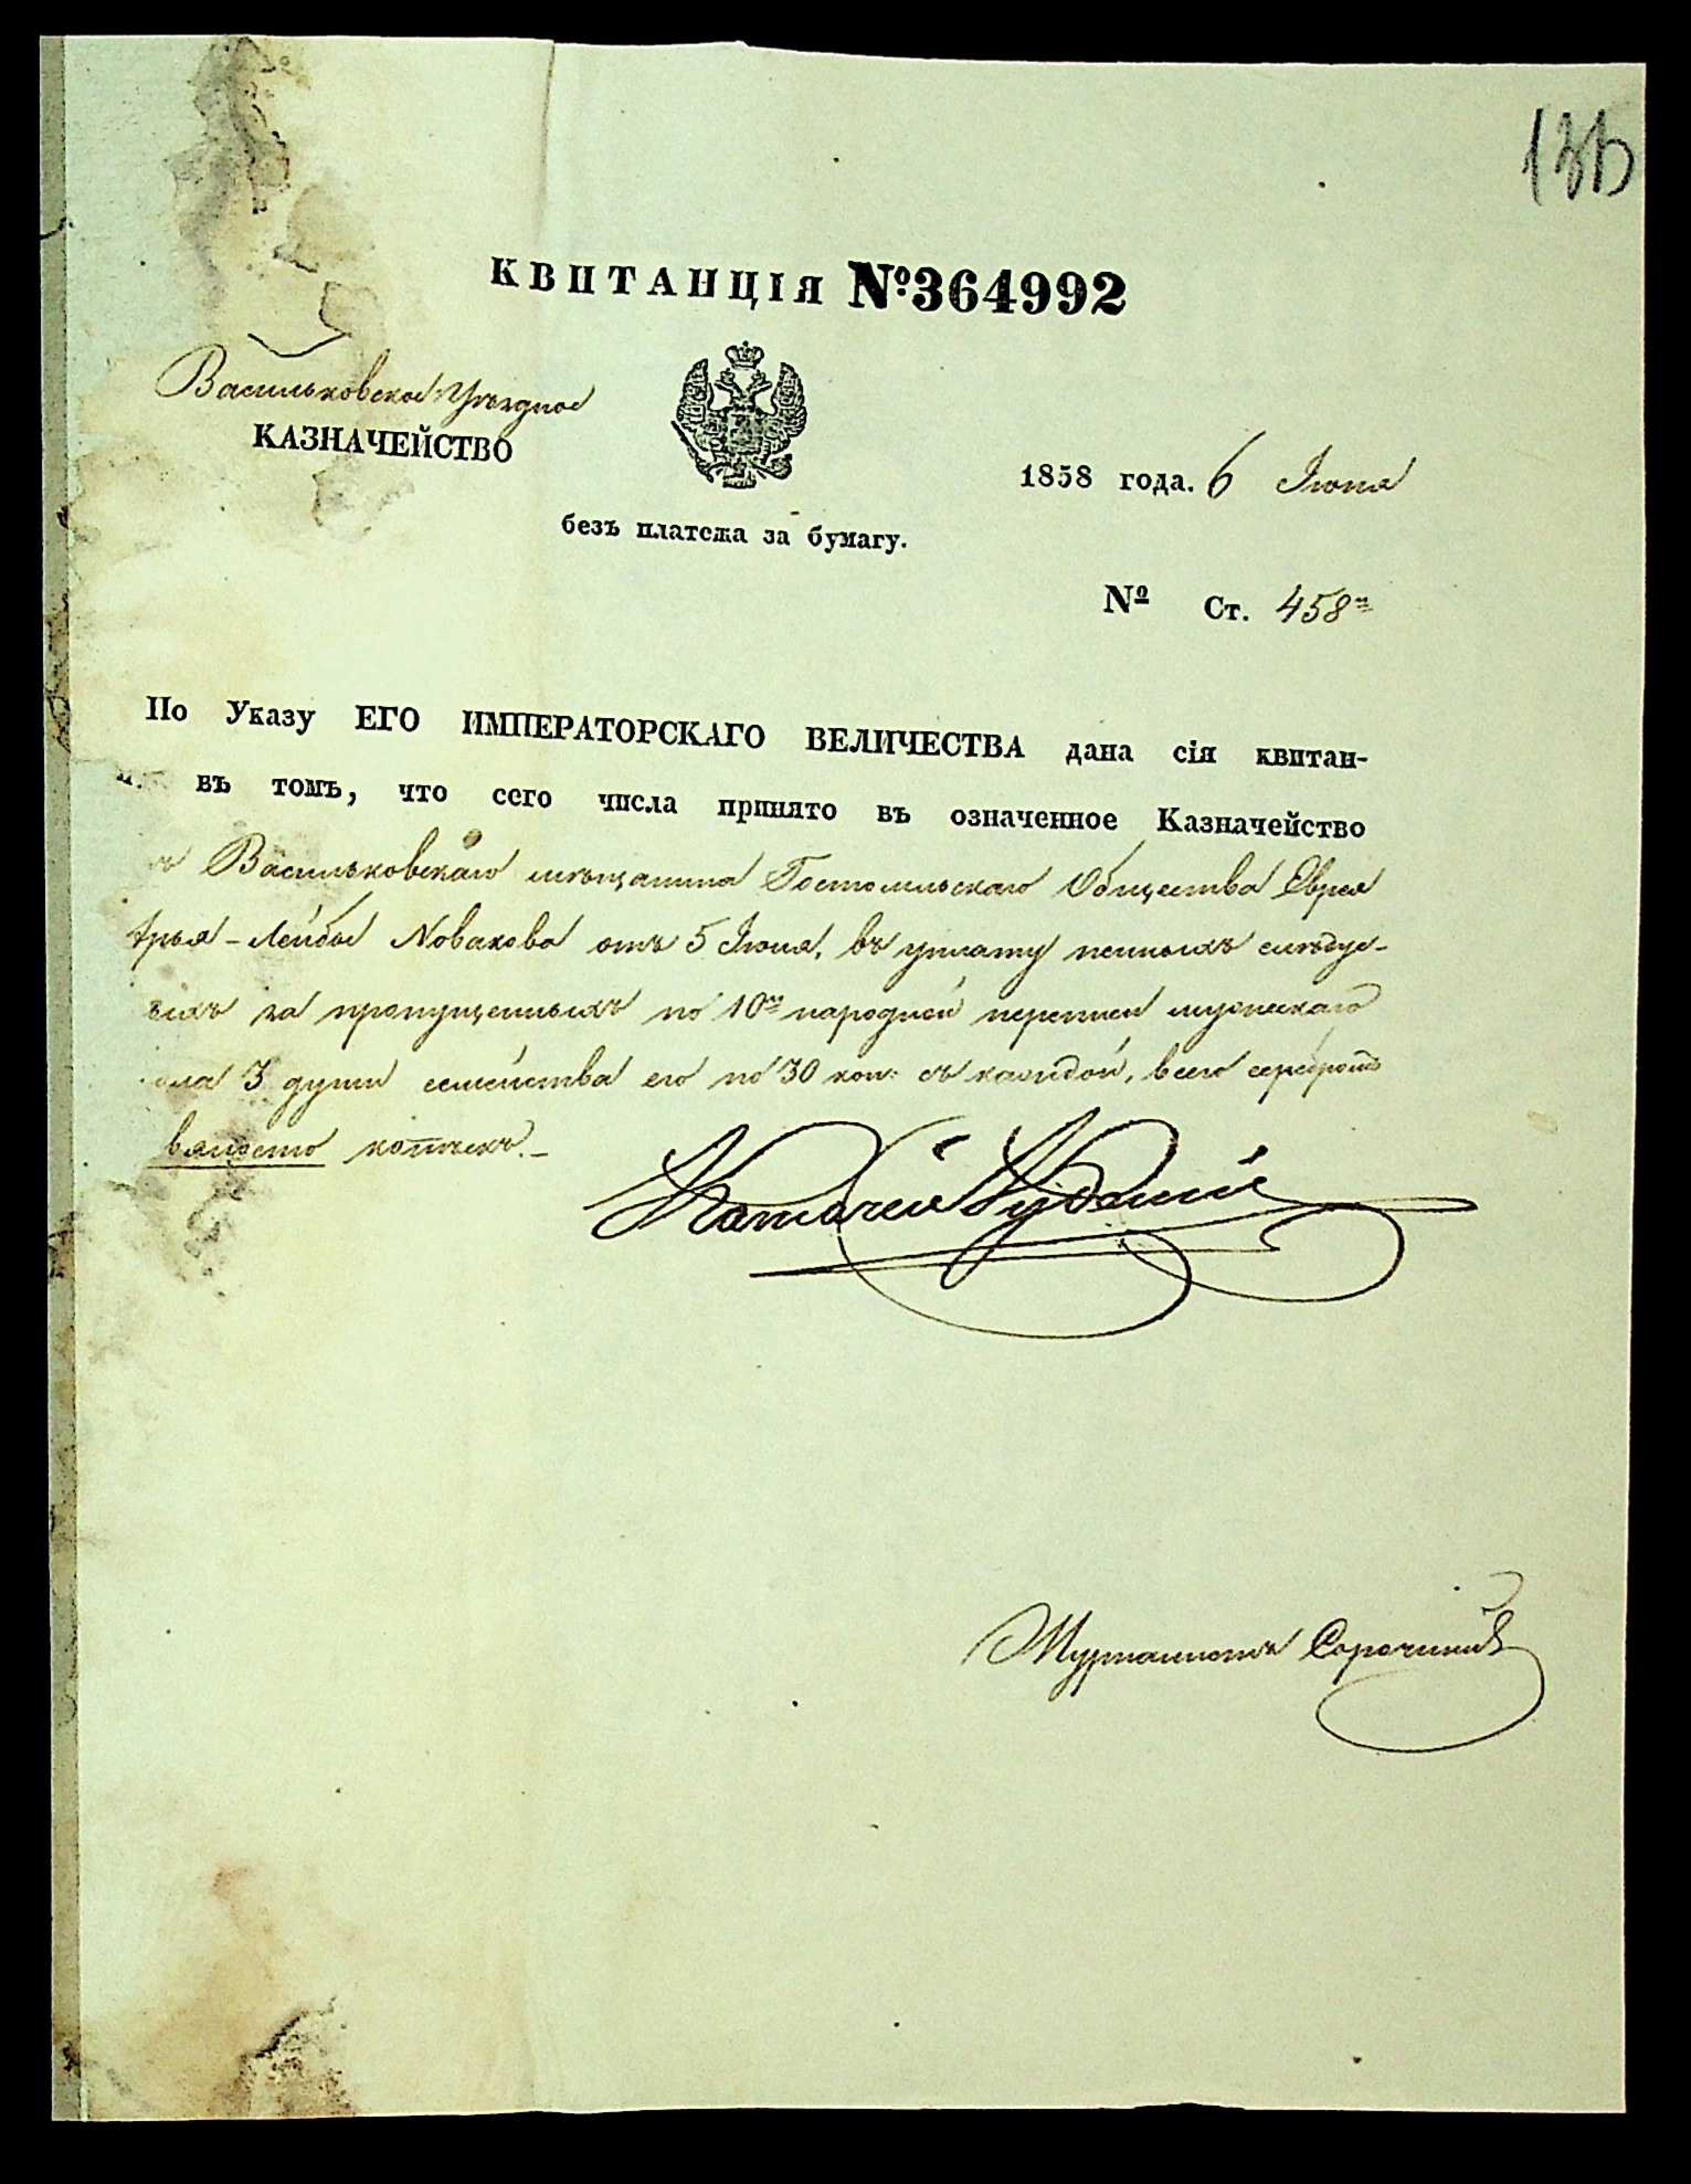 КВИТАНЦІЯ №364992
Васильковское Уѣздное
КАЗНАЧЕЙСТВО
1858 года. 6 Іюня
безъ платежа за бумагу.
№ Ст. 458
По Указу ЕГО ИМПЕРАТОРСКАГО ВЕЛИЧЕСТВА дана сія квитан-
въ томъ, что сего числа принято въ означенное Казначейство
Васильковскаго мѣщанина Гостомльскаго Общества Еврея
Арья-Лейбы Новакова отъ 5 Іюня, въ уплату пенныхъ слѣдуе-
за пропущенныхъ по 10й народной переписи мужескаго
3 души семейства его по 30 коп: съ каждой, всего серебромъ
копѣекъ.-
Казначей
Журналистъ